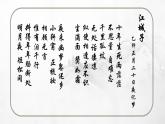 江城子
乙卯正月二十日夜记梦
十年生死两茫茫
不思量 自难忘
千里孤坟
无处话凄凉
纵使相逢应不识
尘满面 鬓如霜
夜来幽梦忽还乡
小轩窗 正梳妆
相顾无言
惟有泪千行
料得年年肠断处
明月夜 短松冈